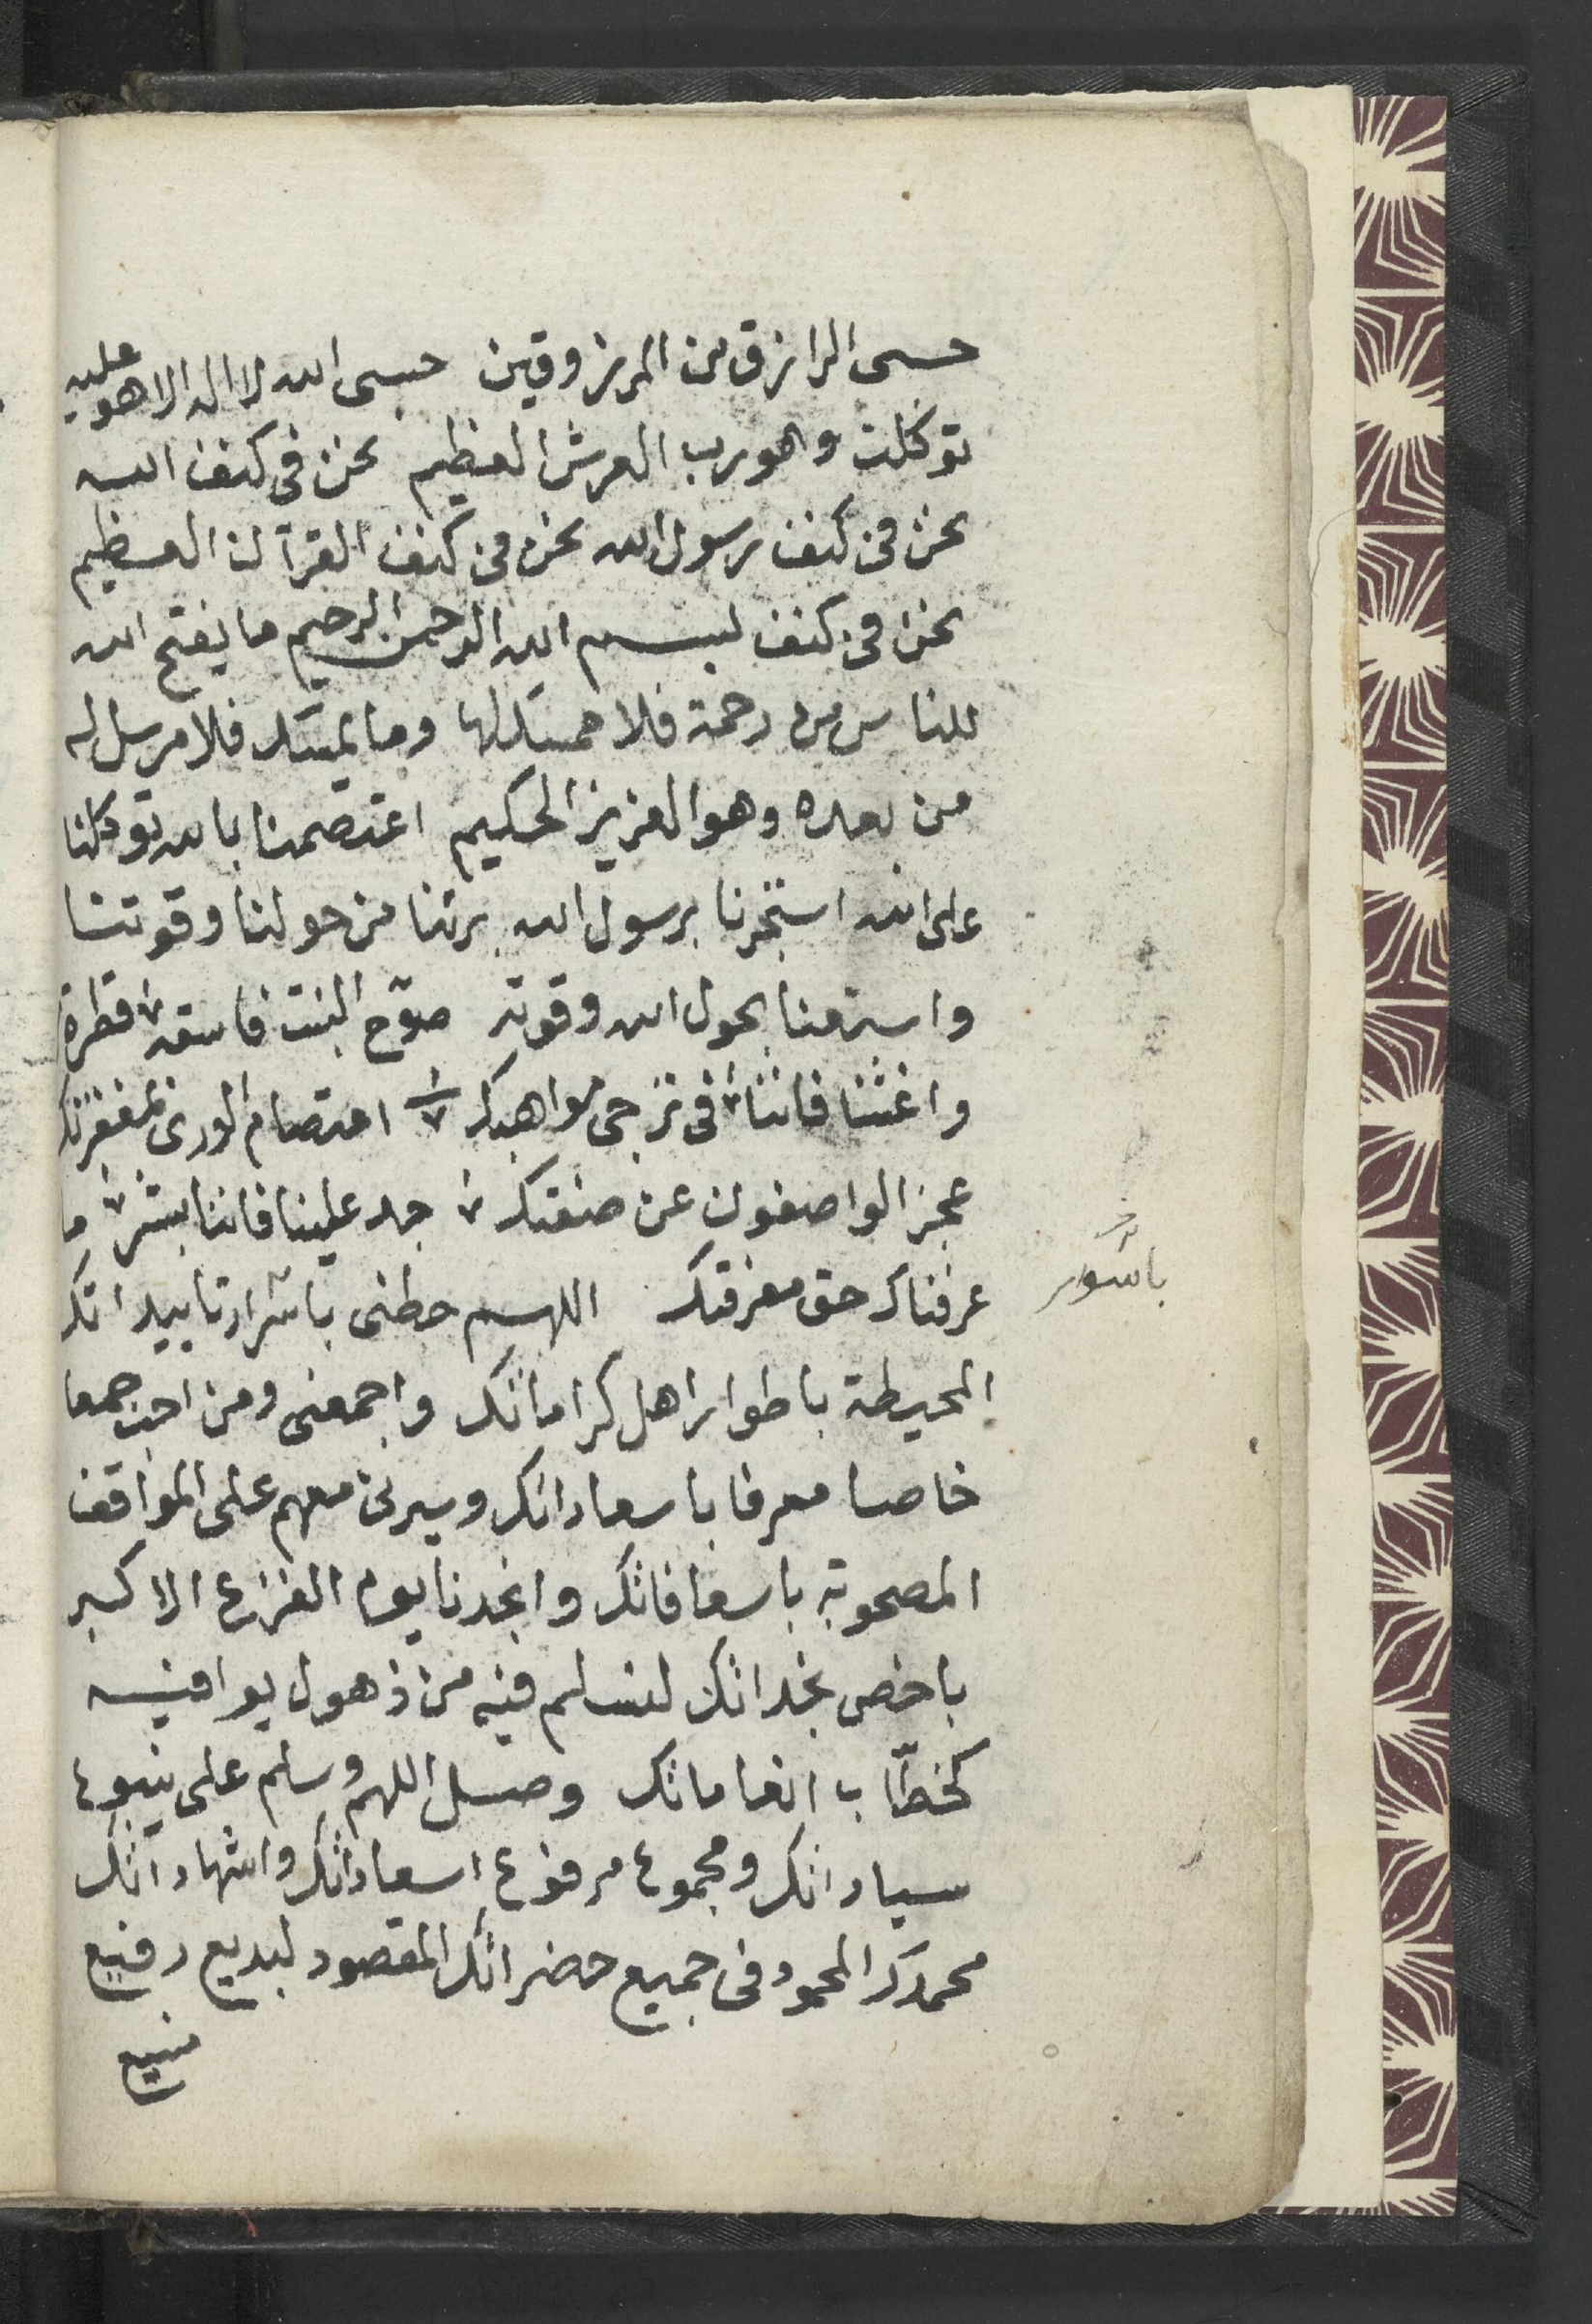 حسبى الرازق من المرزوقين حسبى الله لا اله الا هو عليه
توكلت وهو رب العرش العظيم نحن فى كنف الله
نحن فى كنف رسول الله نحن فى كنف القرآن العظيم
نحن فى كنف بسم الله الرحمن الرحيم ما يفتح الله
للناس من رحمة فلا ممسك لها وما يمسك فلا مرسل له
من بعده وهو العزيز الحكيم اعتصمنا بالله توكلنا
على الله استجرنا برسول الله برئنا من حولنا وقوتنا
واستعنا بحول الله وقوته صوّح النبت فاسقه قطرة
واغثنا فاننا فى ترجى مواهبك اعتصام الورى بمغفرتك
عجز الواصفون عن صفتك جد علينا فاننا بشر ما
عرفناك حق معرفتك اللهم حطنى باسرار تاييداتك
باسوار
المحيطة باطوار اهل كراماتك واجمعنى ومن احب جمعا
خاصا معرفا باسعاداتك وسيرنى معهم على المواقف
المصحوبة باسعافاتك وانجدنا يوم الفزع الاكبر
باخص نجداتك لنسلم فيه من ذهول يوافيه
كخطّاب انعاماتك وصل اللهم وسلم على ينبوع
سياداتك ومجموع مرفوع اسعاداتك واشهاداتك
محمدك المحمود فى جميع حضراتك المقصود لبديع رفيع
منيع